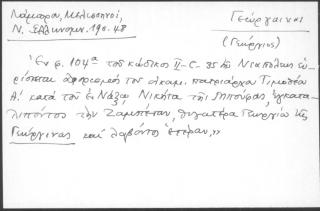 Λάμπρου, Μελισσηνοί,
Ν. Ἑλληνομν. 19ος. 48
Γεώργαινας
(Γεώργιος)
Ἐν φ. 104α τοῦ κώδικος II-C-35 τῆς Νεαπόλεως εὑ-
ρίσκεται ἀφορισμὸς τοῦ οἰκουμ. πατριάρχου Τιμοθέου
Α! κατὰ τοῦ ἐν Νάξῳ Νικήτα τῆς Μηπούρας, ἐγκατα-
λιπόντος τὴν Ζαμπέταν, θυγατέρα Γεωργίου τῆς
Γεώργινας καὶ λαβόντος ἑτέραν,»